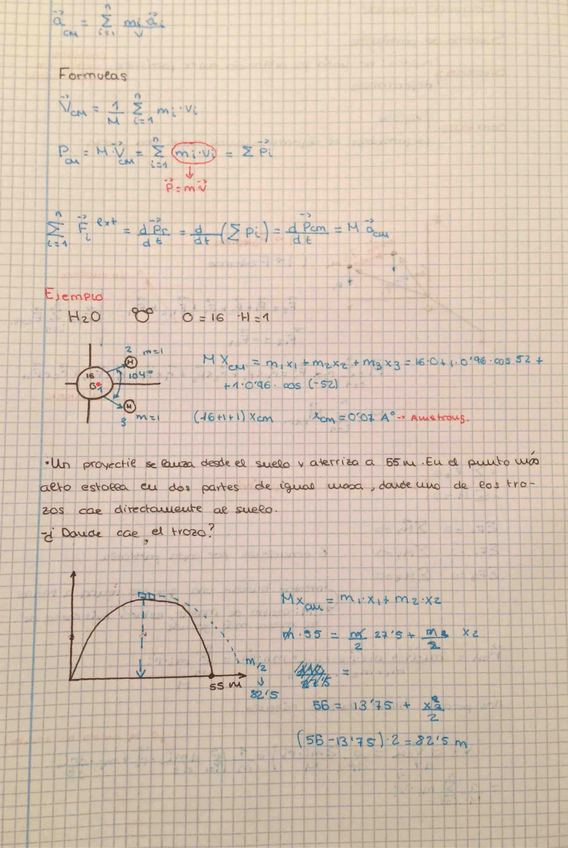 a⃗_CM = Σ_{i=1}^{n} m_i a⃗_i / V
Formulas
V⃗_CM = 1/M Σ_{i=1}^{n} m_i · v_i
P_CM = M · V⃗_CM = Σ_{i=1}^{n} m_i · v_i = Σ P⃗_i
↓
P⃗ = m v⃗
Σ_{i=1}^{n} F⃗_i^{ext} = dP⃗_T/dt = d/dt (Σ P_i) = dP⃗_CM/dt = M a⃗_CM
Ejemplo
H2O O = 16 H = 1
2 m=1
H
16
O
1
104°
H
3 m=1
M X_CM = m1x1 + m2x2 + m3x3 = 16·0 + 1·0'96·cos 52 +
+ 1·0'96 · cos (-52)
(16+1+1) X_CM x_CM = 0'07 A° →
• Un proyectil se lanza desde el suelo y aterriza a 55 m. En el punto más
alto estalla en dos partes de igual masa, donde uno de los tro-
zos cae directamente al suelo.
- ¿Donde cae el trozo?
55 m
m/2
↓
82'5
M x_CM = m1·x1 + m2·x2
m·55 = m/2 27'5 + m/2 x2
=
56 = 13'75 + x2/2
(56 - 13'75)·2 = 82'5 m